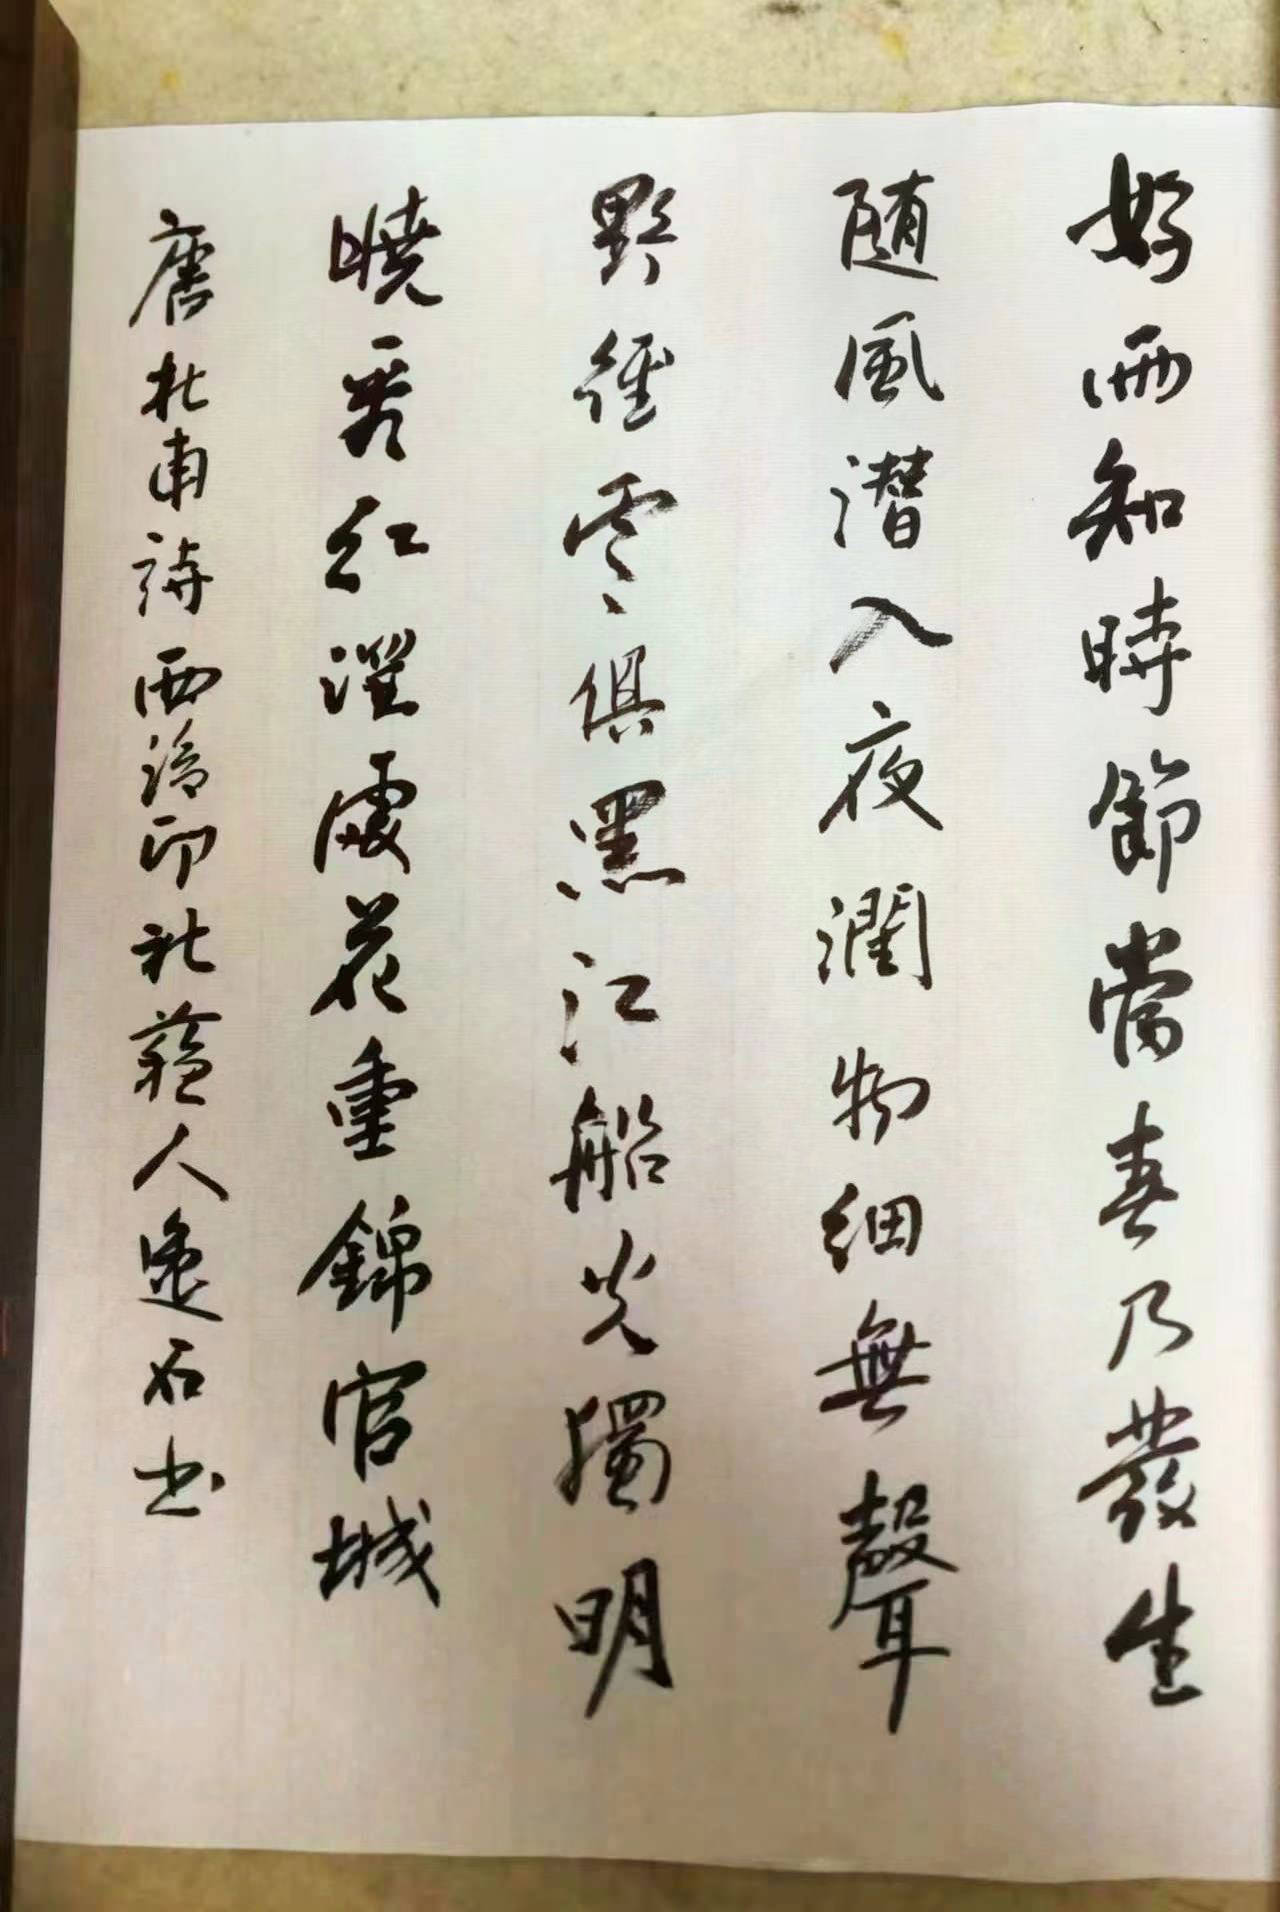 好雨知時節當春乃發生
随風潛入夜潤物細無聲
野徑雲俱黑江船火獨明
曉看紅溼處花重錦官城
唐杜甫詩西泠印社藝人逸石书